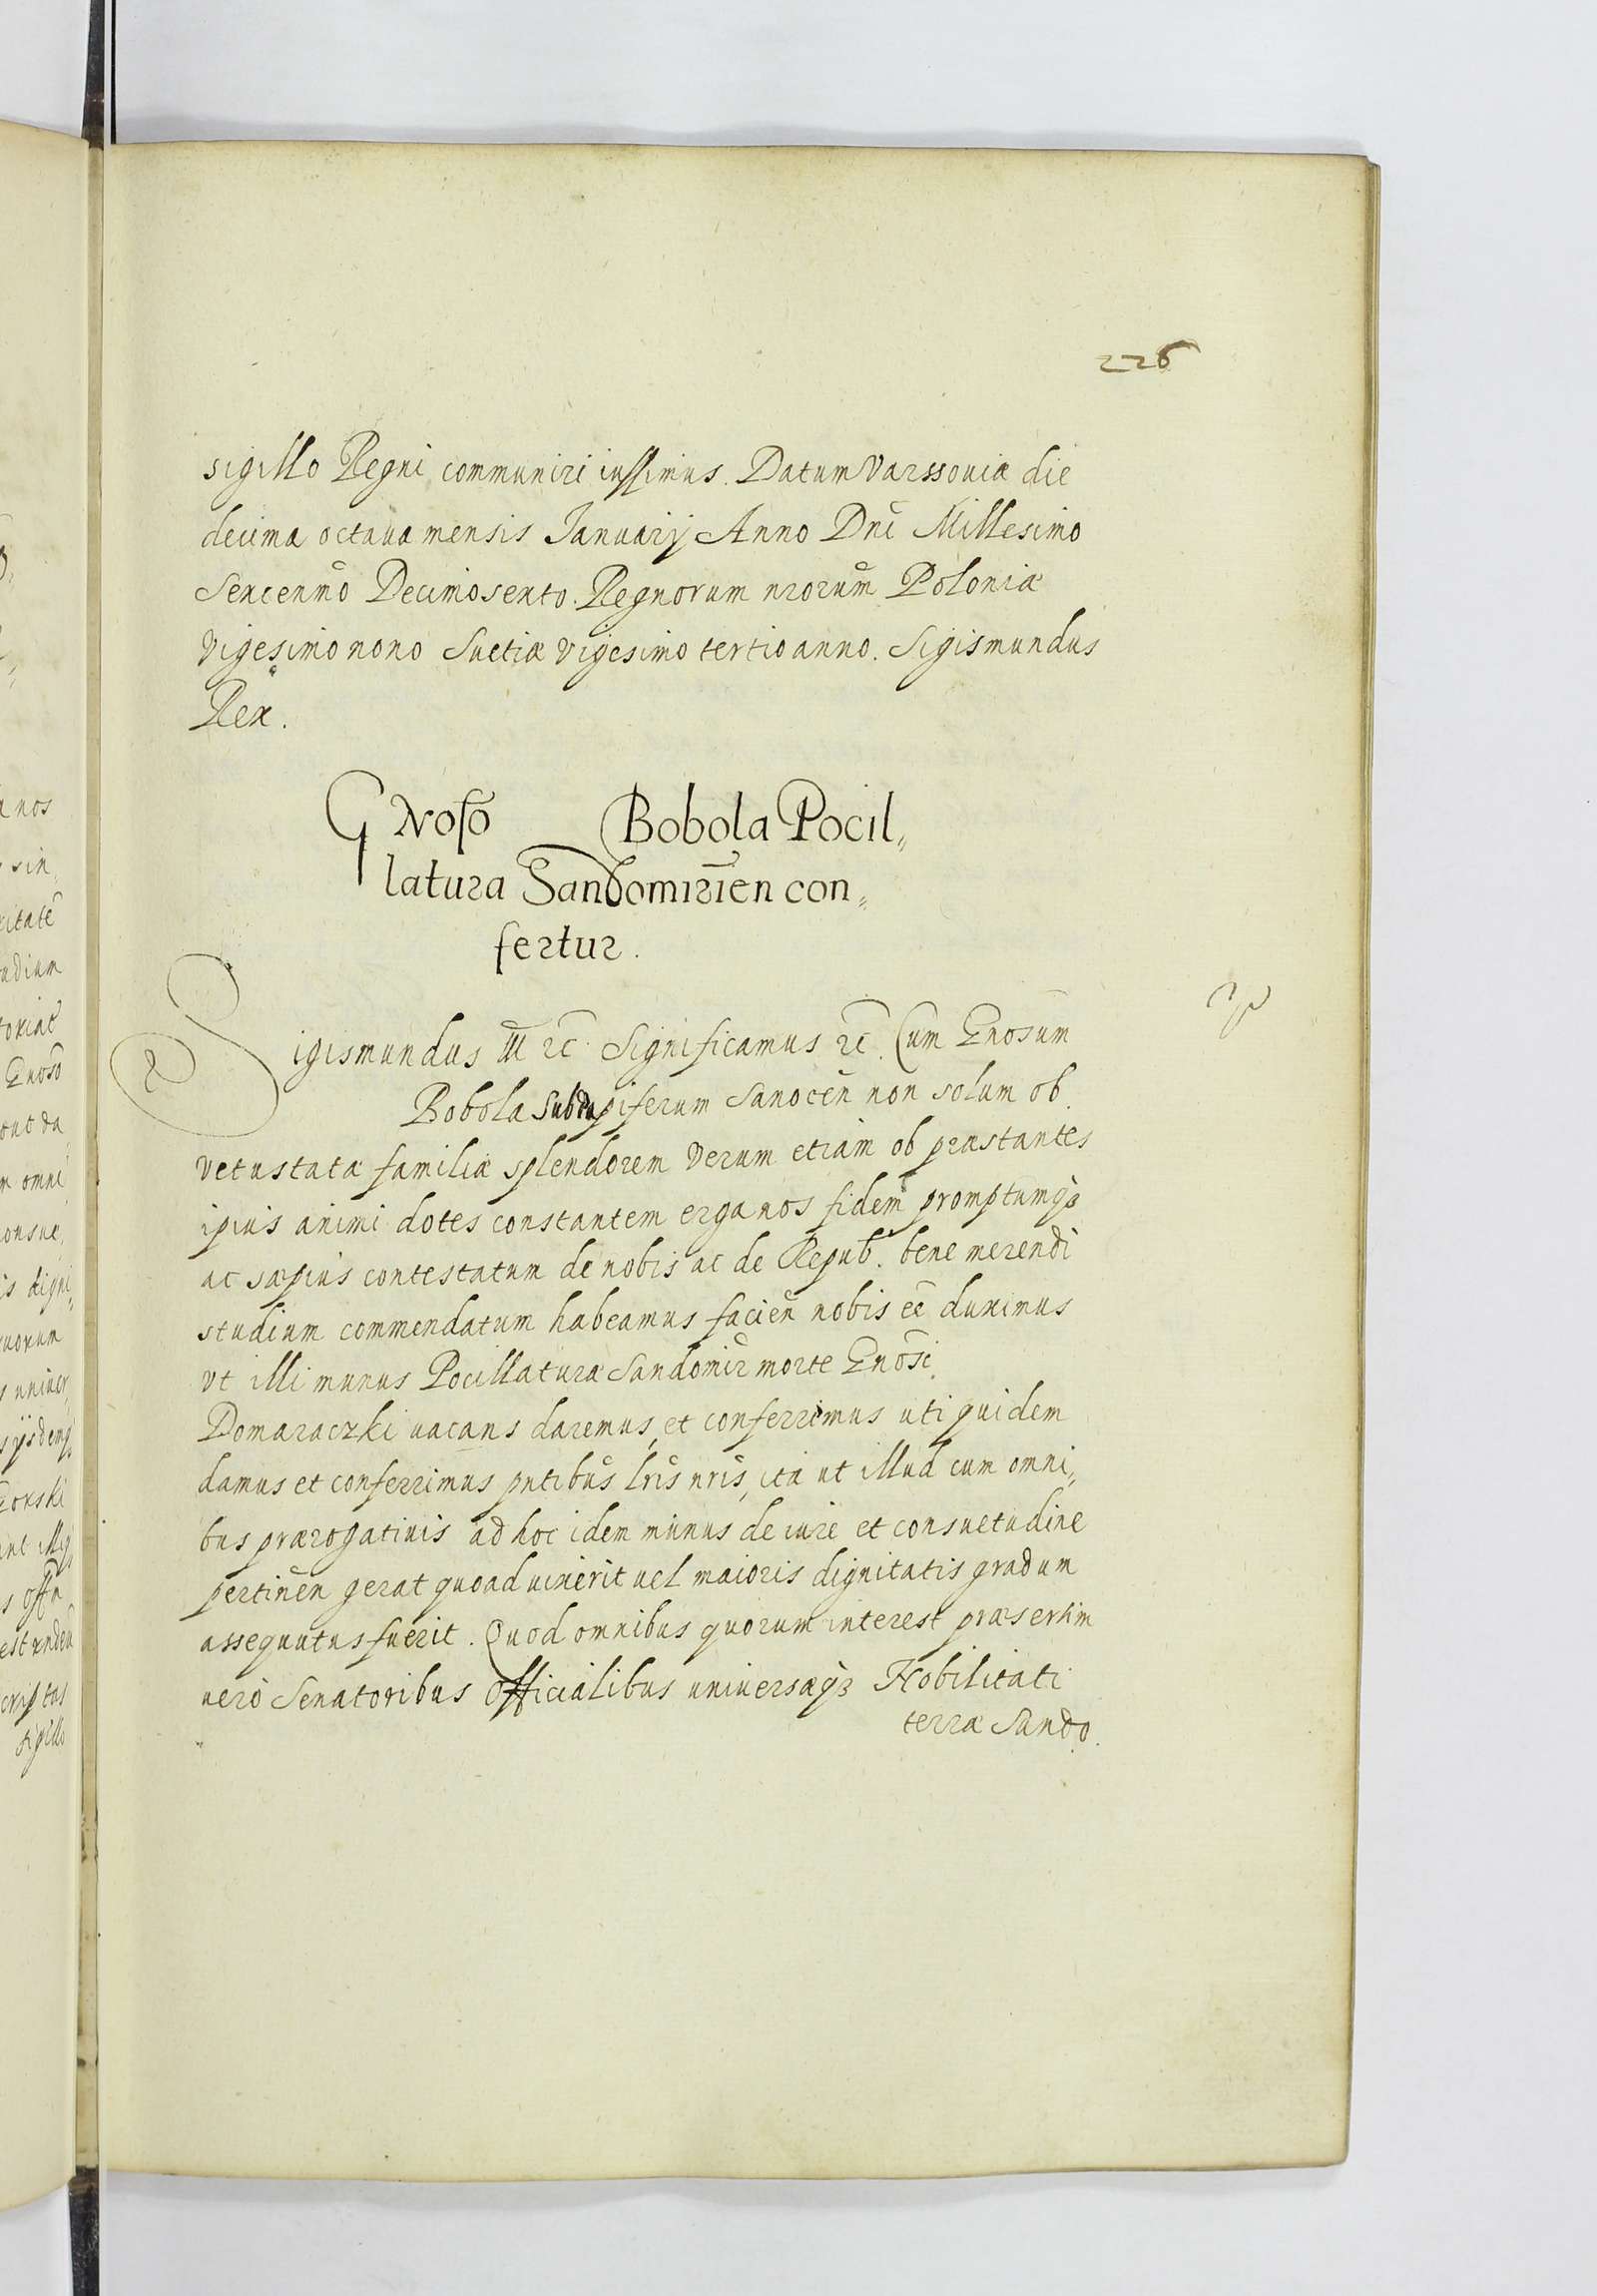 226
sigillo Regni communiri iussimus. Datum Varssoviæ die
decima octaua mensis Ianuarij Anno Dnī Millesimo
Sexcenn̄o Decimosexto. Regnorum nrorum̄ Poloniæ
Vigesimo nono Suetiæ Vigesimo tertio anno. Sigismundus
Rex.
Gnoso Bobola Pocil„
latura Sandomirien̄ con„
fertur.
Sigismundus III rc̄. Significamus rc̄. Cum Gnosum
Bobola Subdapiferum Sanocen̄ non solum ob
vetustatæ familiæ splendorem Verum etiam ob præstantes
ipius animi dotes constantem erga nos fidem promptumq3
ac sæpius contestatum de nobis ac de Repub. bene merendi
studium commendatum habeamus facien̄ nobis eē duximus
Vt illi munus Pocillaturæ Sandomir̄ morte Gnosī
Domaraczki uacans daremus, et conferremus uti quidem
damus et conferrimus pntibūs lrīs nrīs, ita ut illud cum omni„
bus prærogatiuis ad hoc idem munus de iure et consuetudine
pertinen̄ gerat quoad uixerit uel maioris dignitatis gradum
assequutus fuerit. Quod omnibus quorum interest præsertim
uero Senatoribus Officialibus universæq3 Nobilitati
terræ Sando.